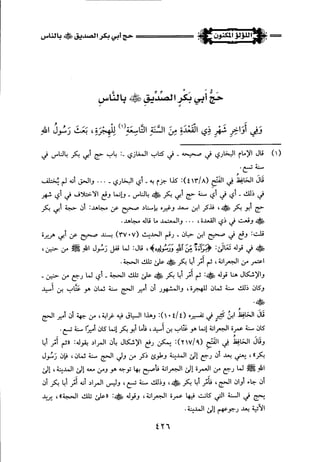 اللؤلؤ المكنون
حج أبي بكر الصديق ﷺ بالناس
حج أبي بكر الصديق ﷺ بالناس
وفي أواخر شهر ذي القعدة من السنة التاسعة (١) للهجرة، بعث رسول الله
(١) قال الإمام البخاري في صحيحه - كتاب المغازي -: باب حج أبي بكر بالناس في
سنة تسع.
قال الحافظ في الفتح (٤١٣/٨): كذا جزم به البخاري ... والحق أنه لم يختلف
في ذلك - أي في أنه حج أبي بكر بالناس - وإنما وقع الاختلاف في أي شهر
حج أبو بكر، فذكر ابن سعد وغيره بإسناد صحيح عن مجاهد: أن حجة أبي بكر
وقعت في ذي القعدة، ... والمعتمد ما قاله مجاهد.
قلت: وقع في صحيح ابن حبان - رقم الحديث (٣٧٠٧) بسند صحيح عن أبي هريرة
في قوله تعالى: ﴿براءة من الله ورسوله﴾، قال: لما قفل رسول الله ﷺ من حنين،
اعتمر من الجعرانة، ثم أمر أبا بكر على تلك الحجة.
والإشكال هنا قوله: ثم أمر أبا بكر على تلك الحجة - أي لما رجع من حنين -
وكان ذلك سنة ثمان للهجرة، والمشهور أن أمير الحج سنة ثمان هو عتاب بن أسيد
قال الحافظ ابن كثير في تفسيره (١٠٤/٤): وهذا السياق فيه غرابة، من جهة أن أمير الحج
سنة عمرة الجعرانة إنما هو عتاب بن أسيد، فأما أبو بكر إنما كان أميرا سنة تسع.
وقال الحافظ في الفتح (٢١٧/٩): يمكن رفع الإشكال بأن المراد بقوله: «ثم أمر أبا
بكر»، يعني بعد أن رجع إلى المدينة وطوى ذكر من ولي الحج سنة ثمان، فإن رسول
الله ﷺ لما رجع من العمرة إلى الجعرانة فأصبح بها توجه هو ومن معه إلى المدينة، إلى
أن جاء أوان الحج، فأمر أبا بكر، وذلك سنة تسع، وليس المراد أنه أمر أبا بكر أن
يحج في السنة التي كانت فيها عمرة الجعرانة، وقوله: «على تلك الحجة»، يريد
الآتية بعد رجوعهم إلى المدينة.
٤٢٦